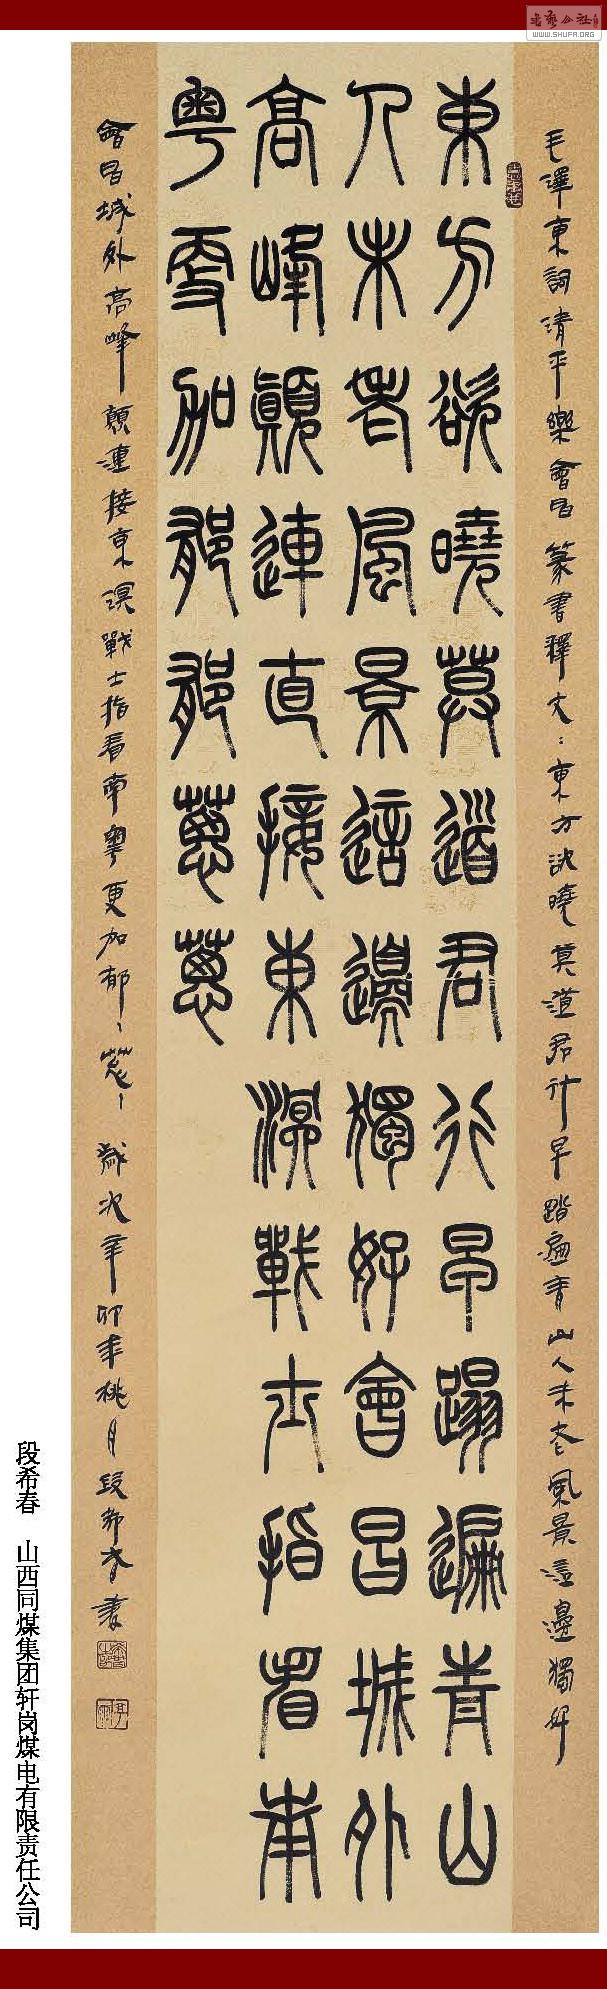 书艺公社
WWW.SHUFA.ORG
毛澤東詞清平樂會昌 篆書釋文：東方欲曉莫道君行早踏遍青山人未老風景這邊獨好
東方欲曉莫道君行早蹋遍青山
人未老風景這邊獨好會昌城外
高峰顛連直接東溟戰士指看南
粵更加郁郁蔥蔥
會昌城外高峰顛連接東溟戰士指看南粵更加郁、蔥、 歲次辛卯年桃月段希春書
段希春 山西同煤集团轩岗煤电有限责任公司